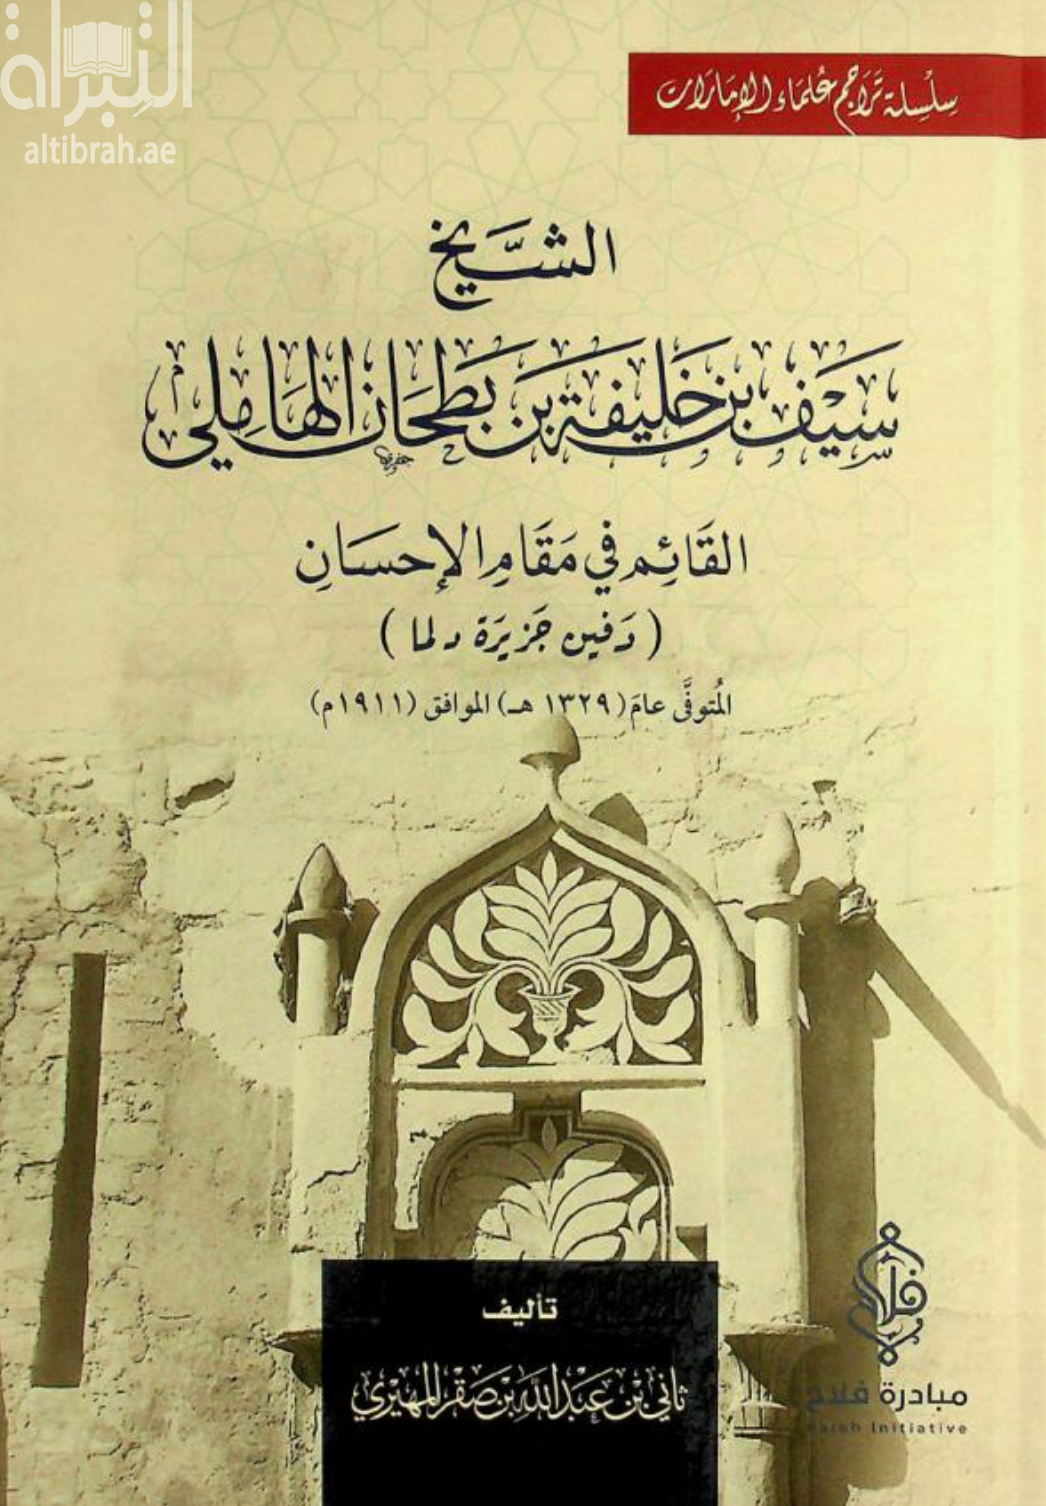 التبراة
altibrah.ae
سِلْسِلة تَرَاجم عُلمَاء الإمَارَات
الشَّيخ
سَيف بن خَليفَة بن بَطحَان الهَامِلي
القَائِم في مَقَامِ الإحسَانِ
(دَفين جَزيرَة دلما)
المُتوفَّى عامَ (١٣٢٩ هـ) الموافق (١٩١١م)
تأليف
ثاني بن عَبْد الله بن صَقْر المهَيْري
فلاح
مبادرة فلاح
Falah Initiative